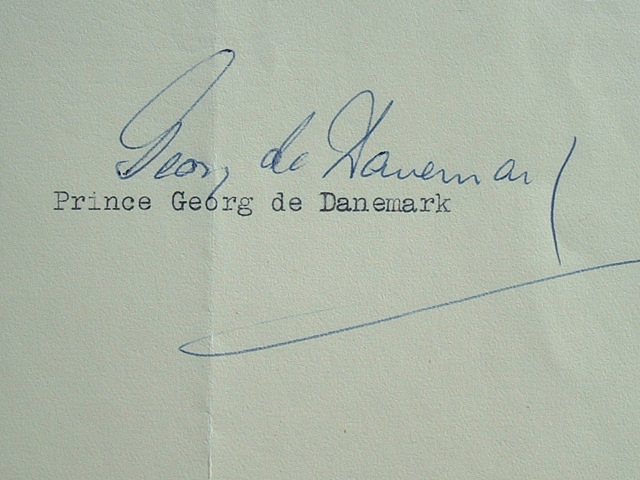 Georg de Danemark
Prince Georg de Danemark